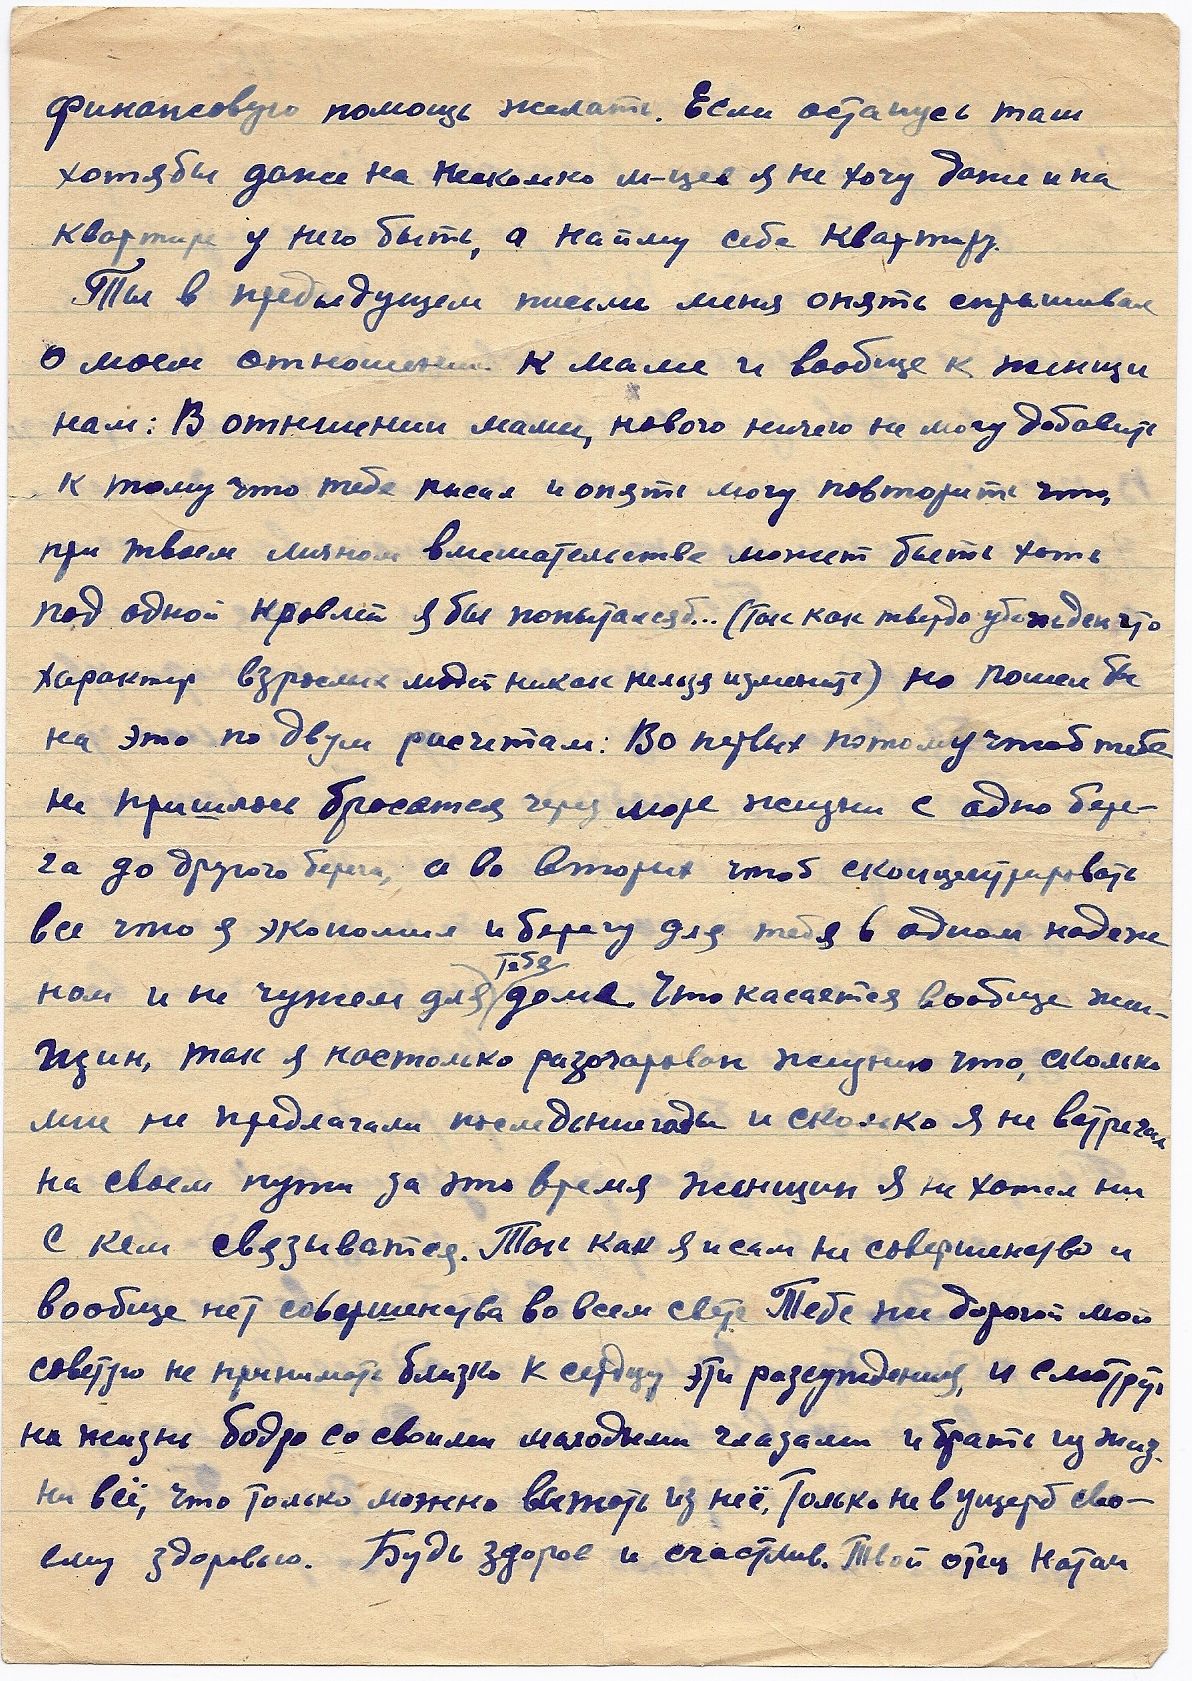 финансовую помощь желать. Если останусь там
хотябы даже на несколько м-цев я не хочу даже и на
квартире у него быть, а найму себе квартиру.
Ты в предыдущем письме меня опять спрашивал
о моем отношении к маме и вообще к женщи
нам: В отншении мамы, нового ничего не могу добавить
к тому что тебе писал и опять могу повторить что,
при твоем личном вмешательстве может быть хоть
под одной кровлей я бы попытался б... (так как твердо убежден что
характер взрослых людей никак нельзя изменить) но пошел бы
на это по двум расчетам: Во первых потому чтоб тебе
не пришлось бросатся через море жизни с одно бере-
га до другого берега, а во вторых чтоб сконцентрировать
все что я экономил и берегу для тебя в одном надеж
ном и не чужем для тебя доме. Что касается вообще жен-
щин, так я настолько разочарован жизнию что, сколько
мне не предлагали последьние годы и сколько я не встречал
на своем пути за это время женщин я не хотел ни
с кем связыватся. Так как я и сам не совершенство и
вообще нет совершенства во всем свете Тебе же дорогой мой
советую не принимать близко к сердцу эти разсуждения, и смотреть
на жизнь бодро со своими молодыми глазами и брать из жиз-
ни всё, что только можно выжать из неё, только не в ущерб сво-
ему здоровью. Будь здоров и счастлив. Твой отец Натан